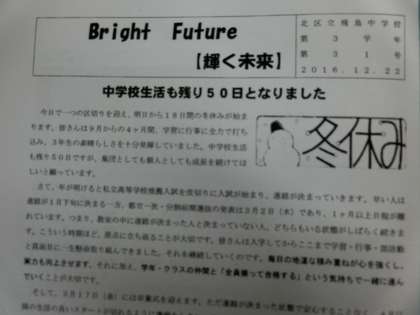 Bright Future
【輝く未来】
北区立飛鳥中学校
第３学年
第３１号
２０１６．１２．２２
中学校生活も残り５０日となりました
今日で一つの区切りを迎え、明日から１８日間の冬休みが始
まります。皆さんは９月からの４ヶ月間、学習に行事に全力で打ち
込み、３年生の素晴らしさを十分発揮していました。中学校生活
も残り５０日ですが、集団としても個人としても成長を続けてほ
しいと願っています。
冬休み
さて、年が明けると私立高等学校推薦入試を皮切りに入試が始まり、進路が決まっていきます。早い人は
進路が１月下旬に決まる一方、都立一次・分割前期選抜の発表は３月２日（木）であり、１ヶ月以上日程が離
れています。つまり、教室の中に進路が決まった人と決まっていない人、どちらもいる状態がしばらく続きま
す。こういう時期ほど、原点に立ち返ることが大切です。皆さんは入学してからここまで学習・行事・部活動
と真面目に一生懸命取り組んできました。それを継続していくのです。毎日の地道な積み重ねが心を強くし、
実力も向上させます。それに加え、学年・クラスの仲間と「全員揃って合格する」という気持ちで一緒に進ん
でいくことが大切です。
そして、３月１７日（金）には卒業式を迎えます。ただ進路が決まった状態で安心することなく、４月